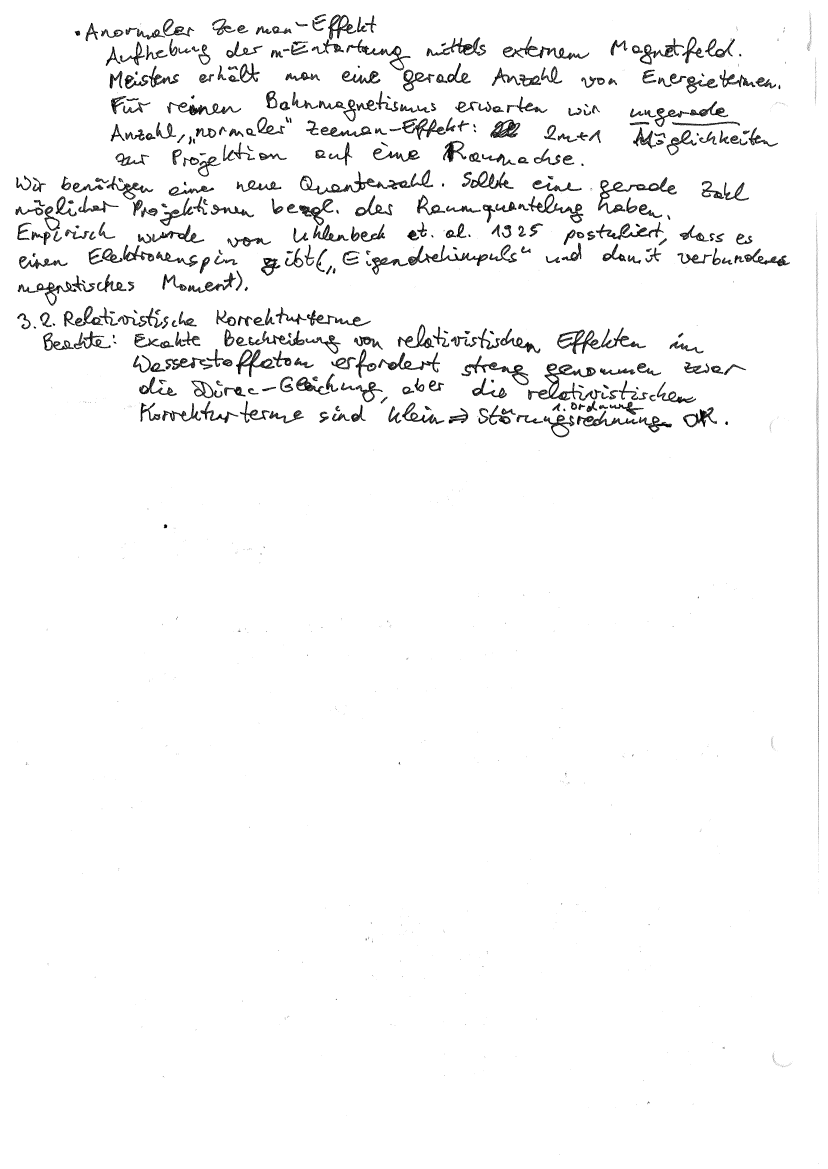 • Anormaler Zeeman-Effekt
Aufhebung der m-Entartung mittels externem Magnetfeld.
Meistens erhält man eine gerade Anzahl von Energietermen.
Für reinen Bahnmagnetismus erwarten wir ungerade
Anzahl, „normaler“ Zeeman-Effekt: 2m+1 Möglichkeiten
zur Projektion auf eine Raumachse.
Wir benötigen eine neue Quantenzahl. Sollte eine gerade Zahl
möglicher Projektionen bezgl. der Raumquantelung haben.
Empirisch wurde von Uhlenbeck et. al. 1925 postuliert, dass es
einen Elektronenspin gibt („Eigendrehimpuls“ und damit verbundenes
magnetisches Moment).
3.2. Relativistische Korrekturterme
Beachte: Exakte Beschreibung von relativistischen Effekten im
Wasserstoffatom erfordert streng genommen zwar
die Dirac-Gleichung, aber die relativistischen
Korrekturterme sind klein ⇒ Störungsrechnung 1. Ordnung OK.